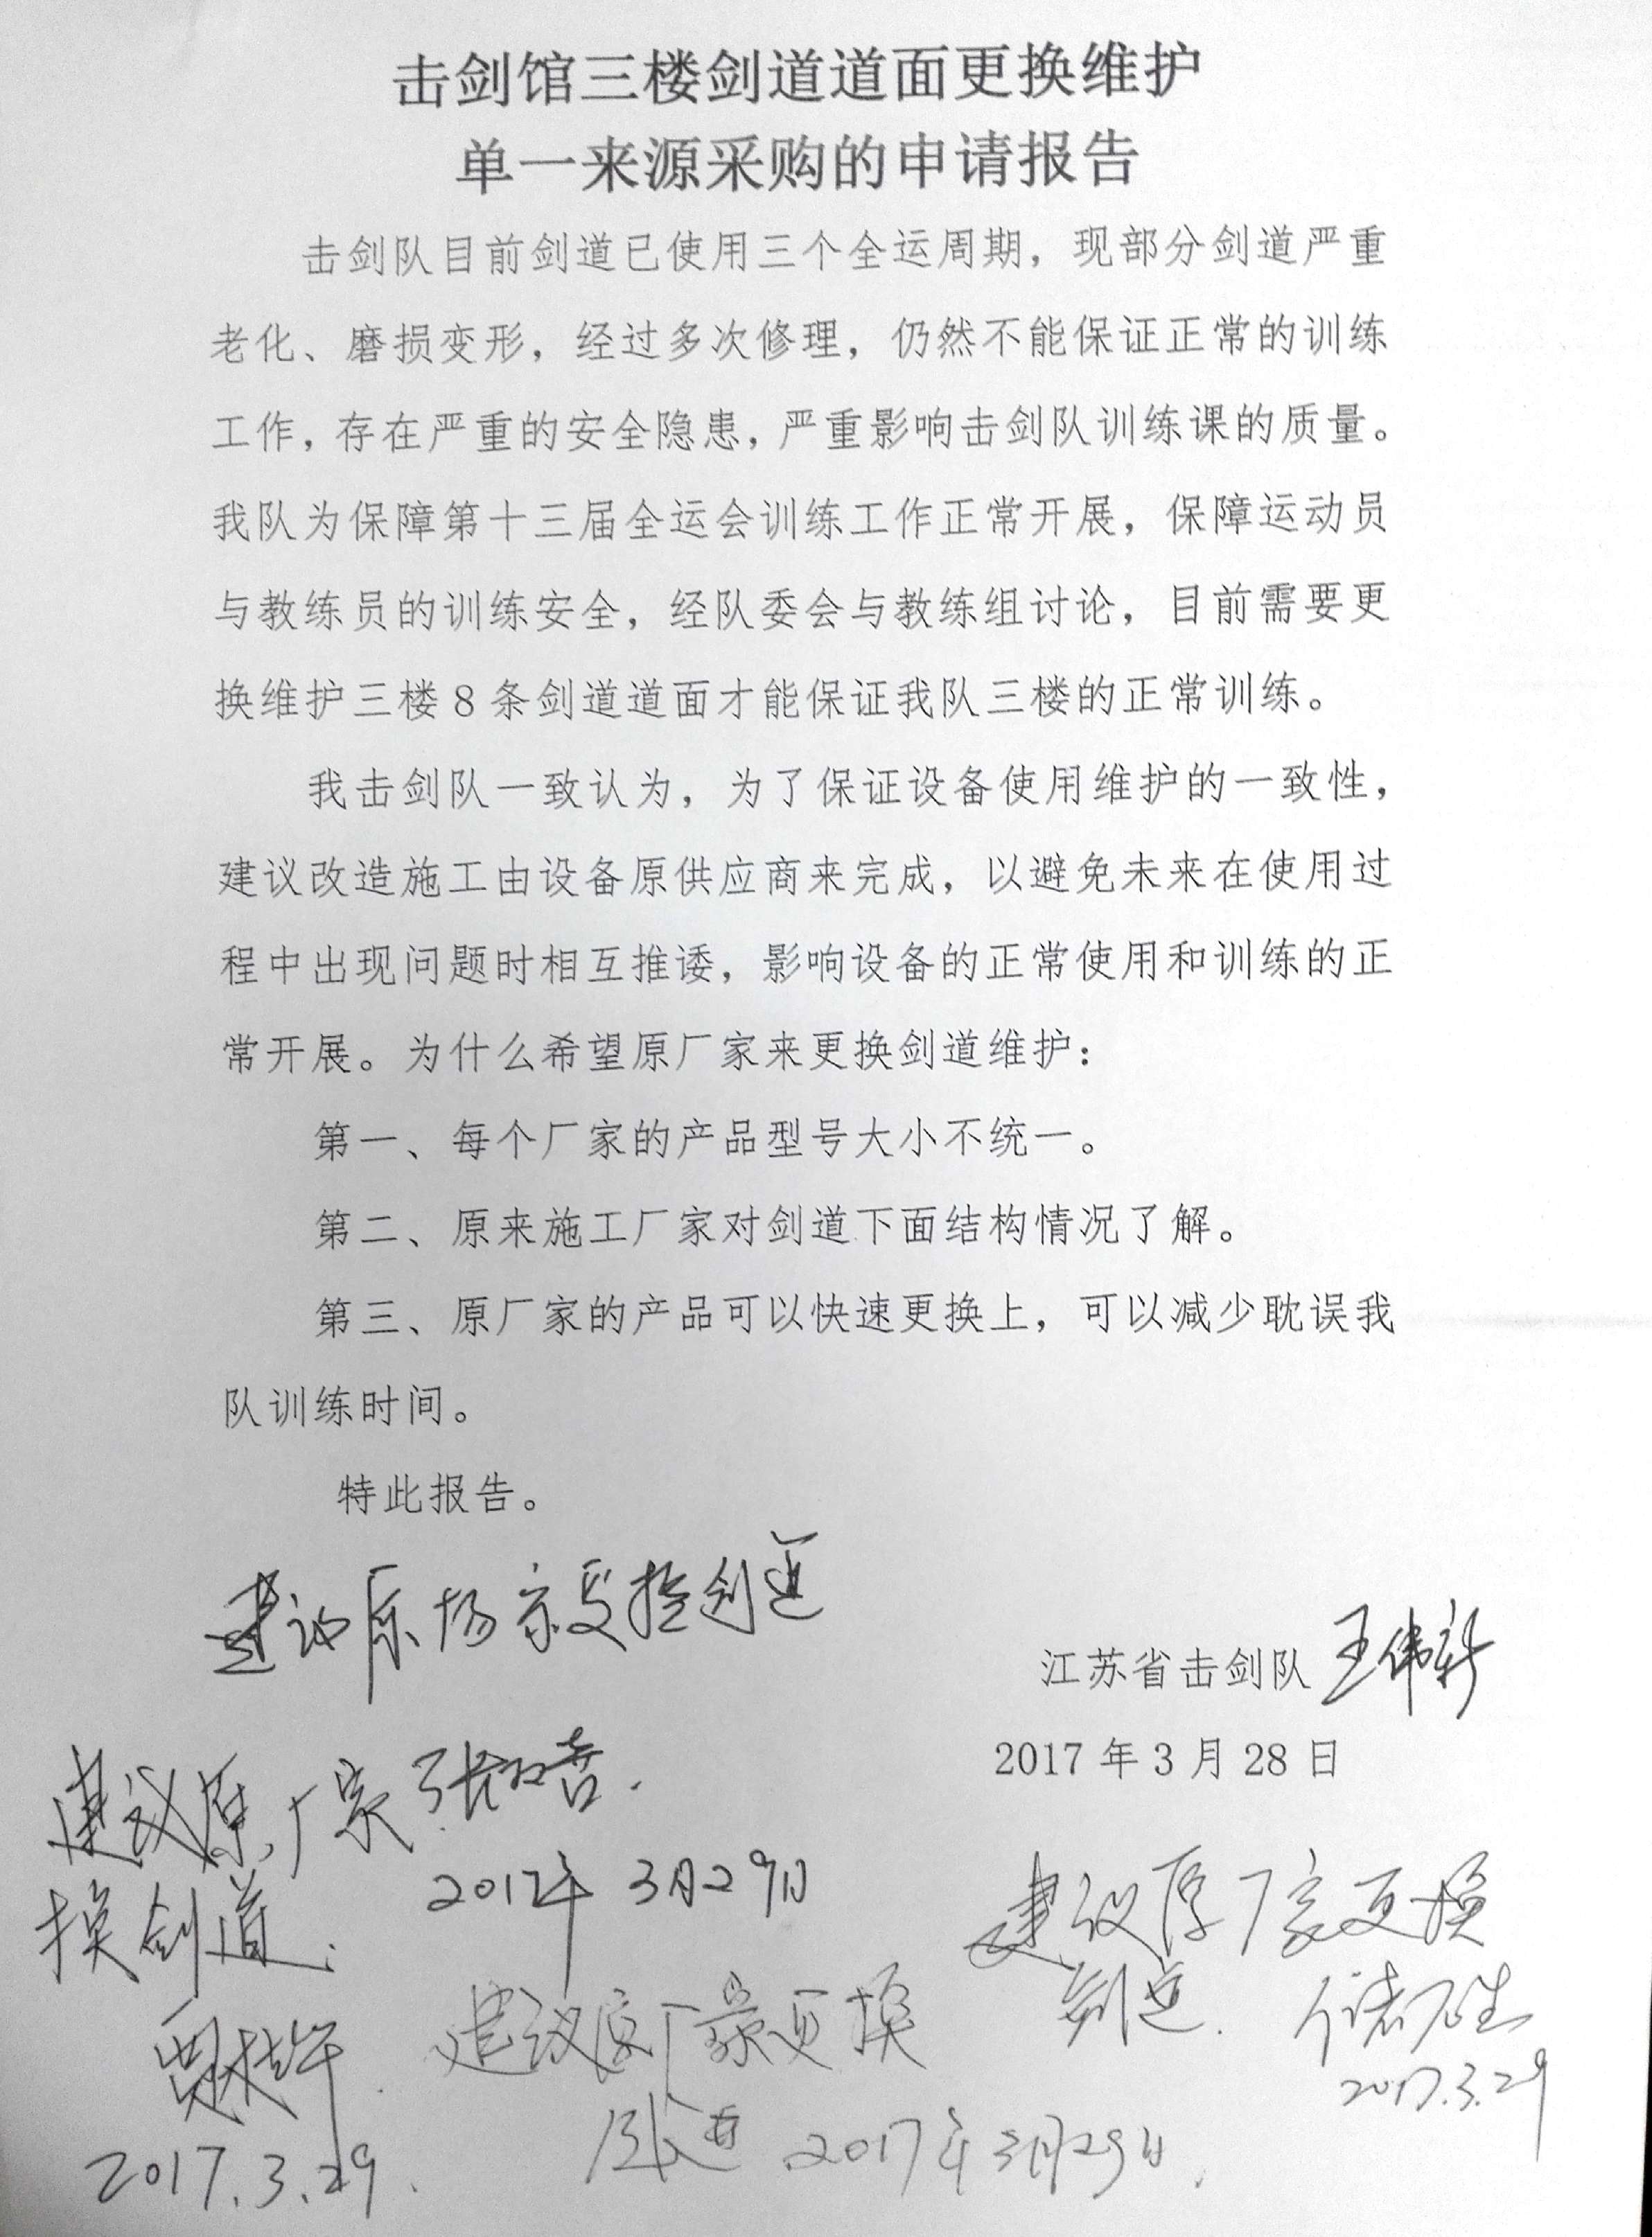 击剑馆三楼剑道道面更换维护
单一来源采购的申请报告
击剑队目前剑道已使用三个全运周期，现部分剑道严重
老化、磨损变形，经过多次修理，仍然不能保证正常的训练
工作，存在严重的安全隐患，严重影响击剑队训练课的质量。
我队为保障第十三届全运会训练工作正常开展，保障运动员
与教练员的训练安全，经队委会与教练组讨论，目前需要更
换维护三楼8条剑道道面才能保证我队三楼的正常训练。
我击剑队一致认为，为了保证设备使用维护的一致性，
建议改造施工由设备原供应商来完成，以避免未来在使用过
程中出现问题时相互推诿，影响设备的正常使用和训练的正
常开展。为什么希望原厂家来更换剑道维护：
第一、每个厂家的产品型号大小不统一。
第二、原来施工厂家对剑道下面结构情况了解。
第三、原厂家的产品可以快速更换上，可以减少耽误我
队训练时间。
特此报告。
建议原
剑道
江苏省击剑队 王伟新
2017年3月28日
建议原厂家 张双喜.
换剑道.
2017年3月29日
建议原厂家更换
剑道.
2017.3.29
建议原厂家更换
2017年3月29日.
2017.3.29.